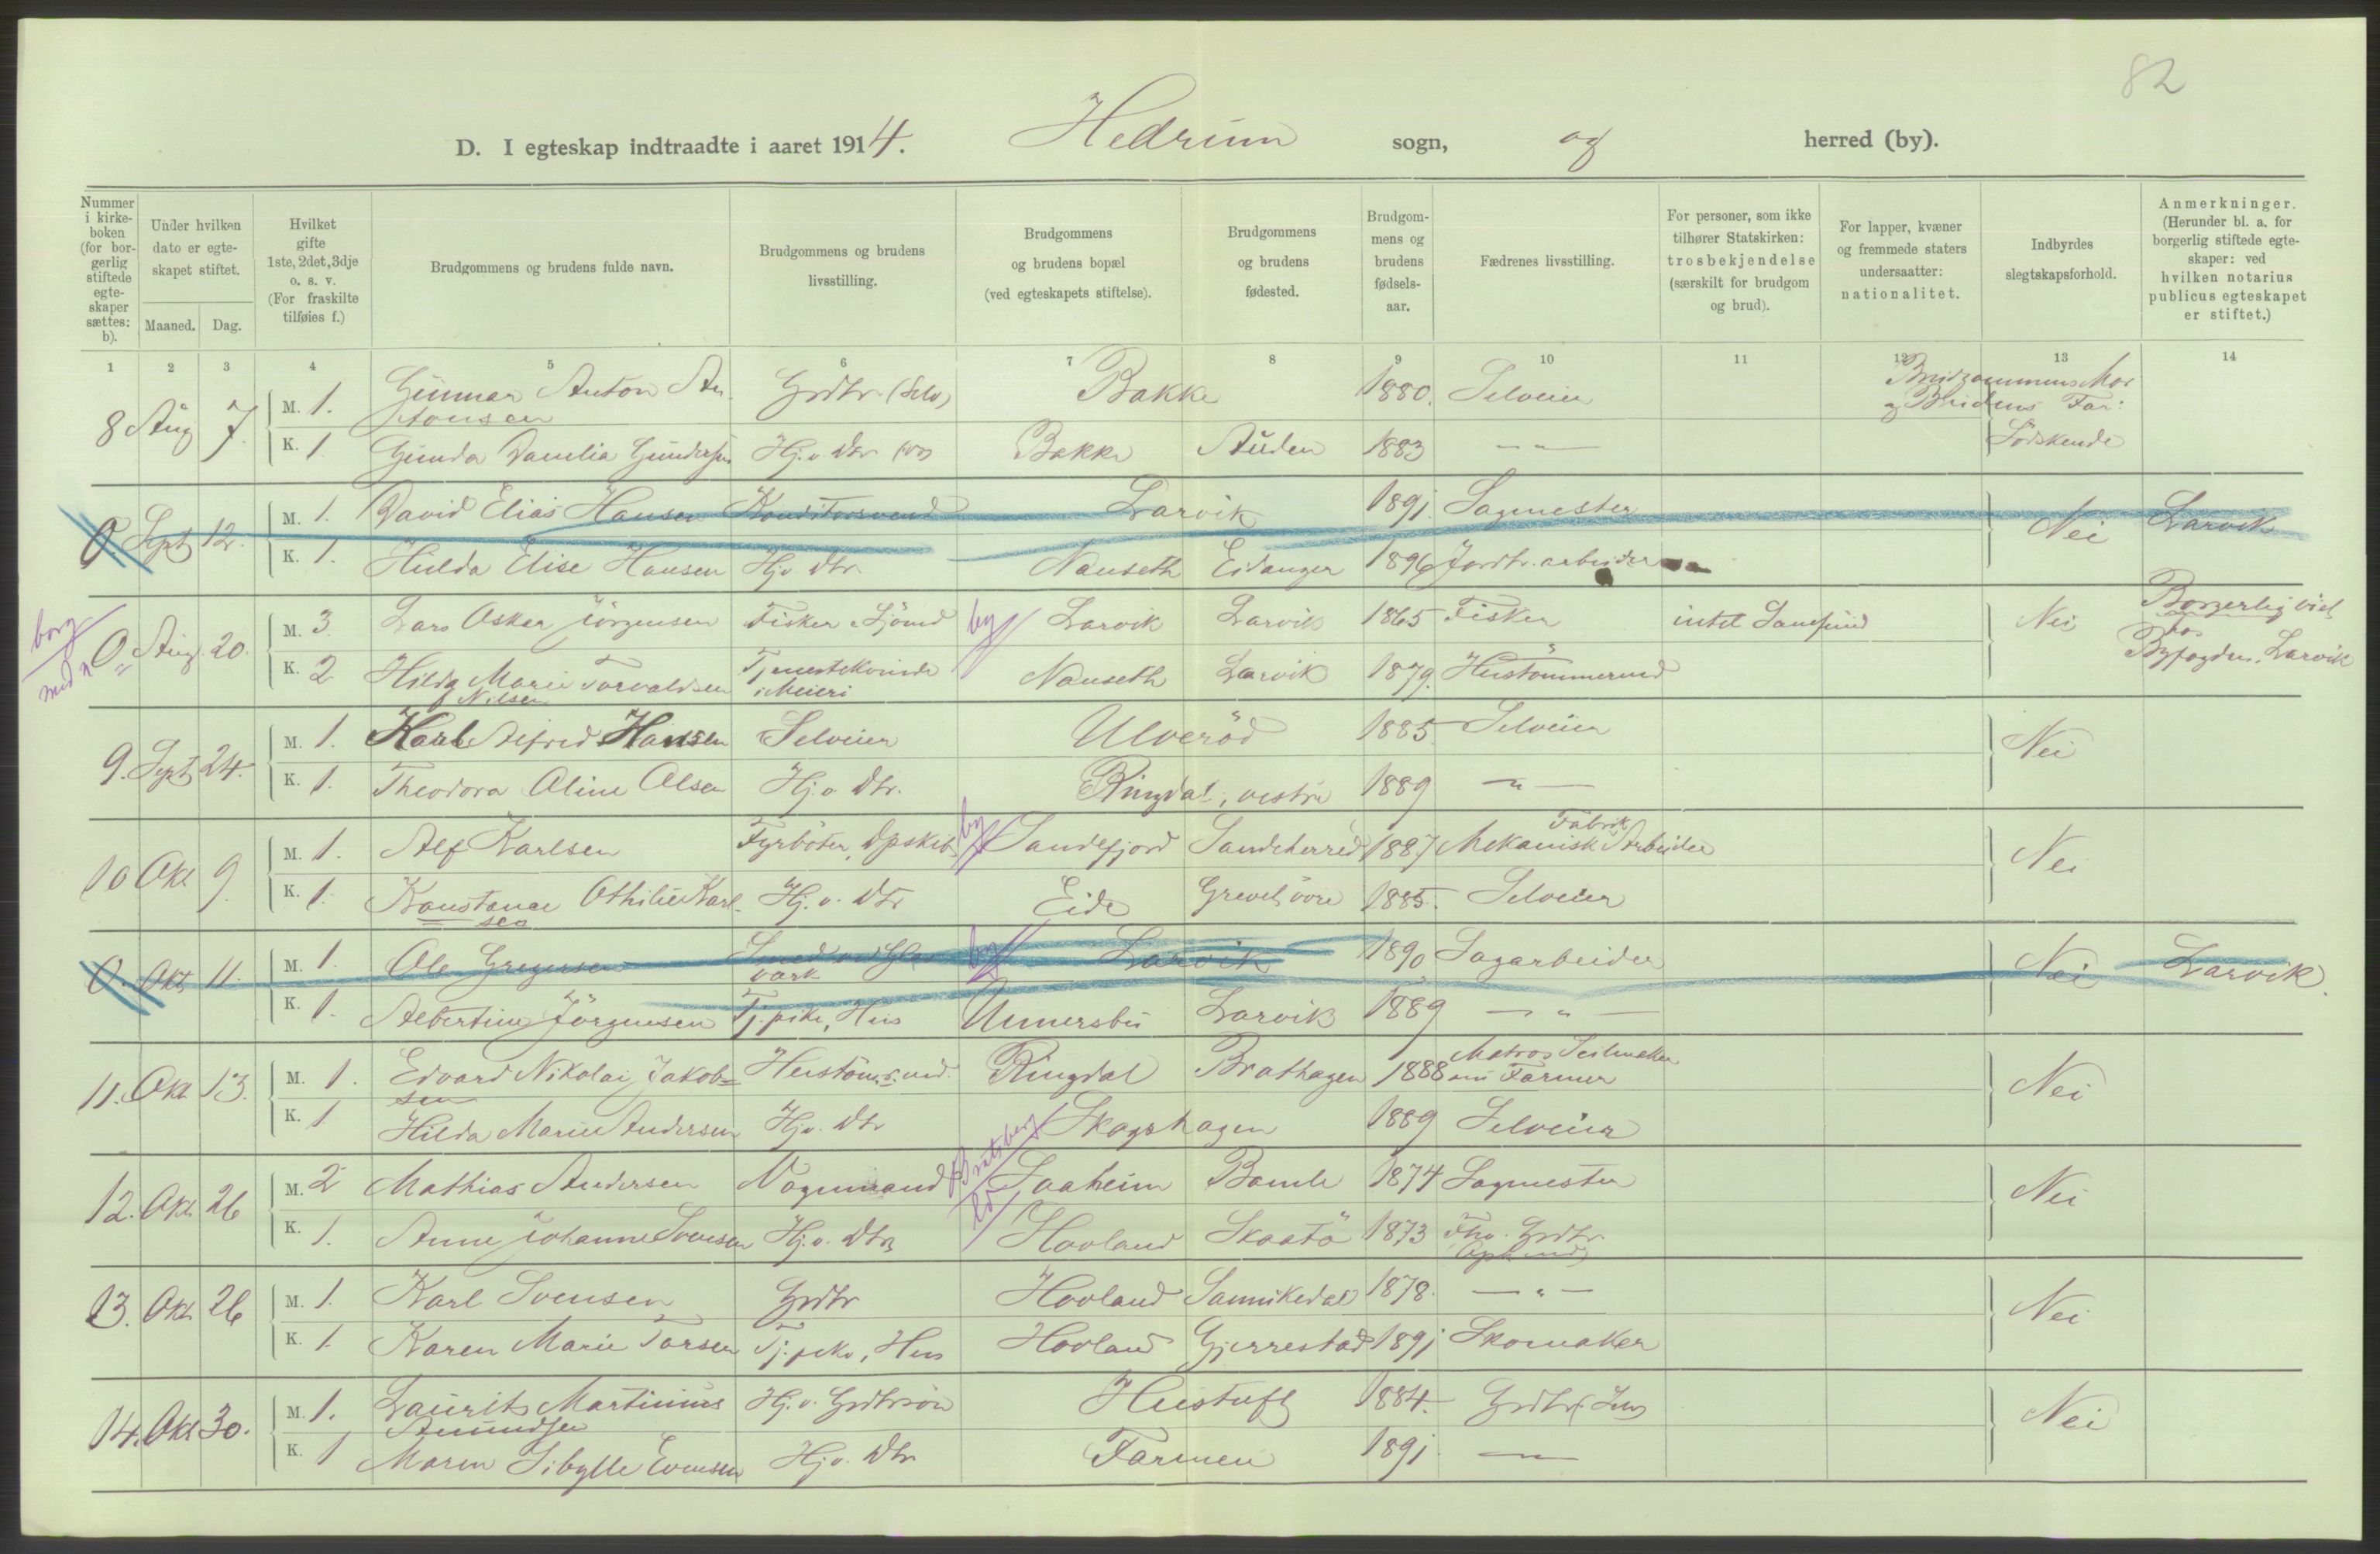 82
D. I egteskap indtraadte i aaret 1914. Hedrum sogn, og herred (by).
Nummer i kirkeboken (for borgerlig stiftede egteskaper sættes: b).
Under hvilken dato er egteskapet stiftet.
Maaned. Dag.
Hvilket gifte 1ste, 2det, 3dje o. s. v. (For fraskilte tilføies f.)
Brudgommens og brudens fulde navn.
Brudgommens og brudens livsstilling.
Brudgommens og brudens bopæl (ved egteskapets stiftelse).
Brudgommens og brudens fødested.
Brudgommens og brudens fødselsaar.
Fædrenes livsstilling.
For personer, som ikke tilhører Statskirken: trosbekjendelse (særskilt for brudgom og brud).
For lapper, kvæner og fremmede staters undersaatter: nationalitet.
Indbyrdes slegtskapsforhold.
Anmerkninger. (Herunder bl. a. for borgerlig stiftede egteskaper: ved hvilken notarius publicus egteskapet er stiftet.)
1 2 3 4 5 6 7 8 9 10 11 12 13 14
8 Aug 7. M. 1. Gunnar Anton Antonsen Grdbr. (Selv) Bakke 1880. Selveier Brudgommens Mor og Brudens Far: Sødskende
K. 1 Gunda Gundersen Hj. v. Dtr. Bakke Auden 1883 — " —
0. Sept 12. M. 1. David Elias Hansen Konditorsvend Larvik 1891. Sagmester Nei Larvik
K. 1. Hulda Elise Hansen Hj. v. Dtr. Nanseth Eidanger 1896 Jordbr. arbeider
borg
med n
0 Aug. 20. M. 3. Lars Oskar Jörgensen Fisker Sjömd by Larvik Larvik 1865 Fisker intet Samfund Nei Borgerlig viet hos Byfogden, Larvik
K. 2 Hilda Marie Torvaldsen Nilsen Tjenestekvinde i Meieri Nanseth Larvik 1879. Hustömmermd
9. Sept 24. M. 1. Karl Alfred Hansen Selveier Ulveröd 1885. Selveier Nei
K. 1. Theodora Oline Olsen Hj. v. Dtr. Ringdal, vestre 1889 — " —
10 Okt 9. M. 1. Alf Karlsen Fyrböter, Dpskib by Sandefjord Sandeherred 1887 Mekanisk Fabrik Arbeider Nei
K. 1. Konstanse Othilie Karlsen Hj. v. Dtr Eide 1885. Selveier
0. Okt. 11. M. 1. Ole Gregersen Smed ved Glasværk by Larvik 1890 Sagarbeider Nei Larvik.
K. 1. Albertine Jörgensen Tj. pike, Hus Unnersbu Larvik 1889 — " —
11. Okt 13. M. 1. Edvard Nikolai Jakobsen Hustöm.md. Ringdal Brathagen 1888 Matros Seilmaker nu Farmer Nei
K. 1 Hilda Marie Andersen Hj. v. Dtr Skogshagen 1889 Selveier
12. Okt. 26 M. 2 Mathias Andersen Vognmand Bratsberg Saaheim Bamle 1874 Sagmester Nei
K. 1. Anne Johanne Svensen Hj. v. Dtr Hovland Skaatö 1873 Grdbr.
13. Okt 26 M. 1. Karl Svensen Grdbr Hovland Sannikedal 1878. — " — Nei
K. 1. Karen Marie Tarsen Tj. pike, Hus Hovland Gjerrestad 1891 Skomaker
14. Okt 30. M. 1. Laurits Martinius Amundsen Hj. v. Grdbrsön Hustuft 1884. Grdbr. Nei
K. 1 Maren Sibylle Evensen Hj. v. Dtr. Farmen 1891. — " —